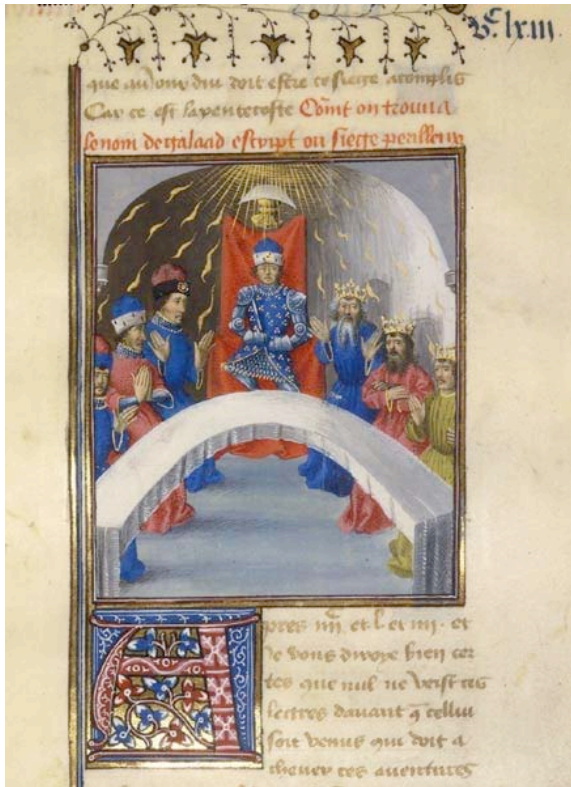 v.c lxiii
que au jour dui doit estre ce siege acomplis
Car ce est la pentecoste Comt on trouua
le nom de galaad escript ou siege perilleux
Apres iiii et l et iiii. et
ie vous diroye bien cer
tes que nul ne veist ces
lectres dauant q̄ cellui
soit venus qui doit a
cheuer ces auentures